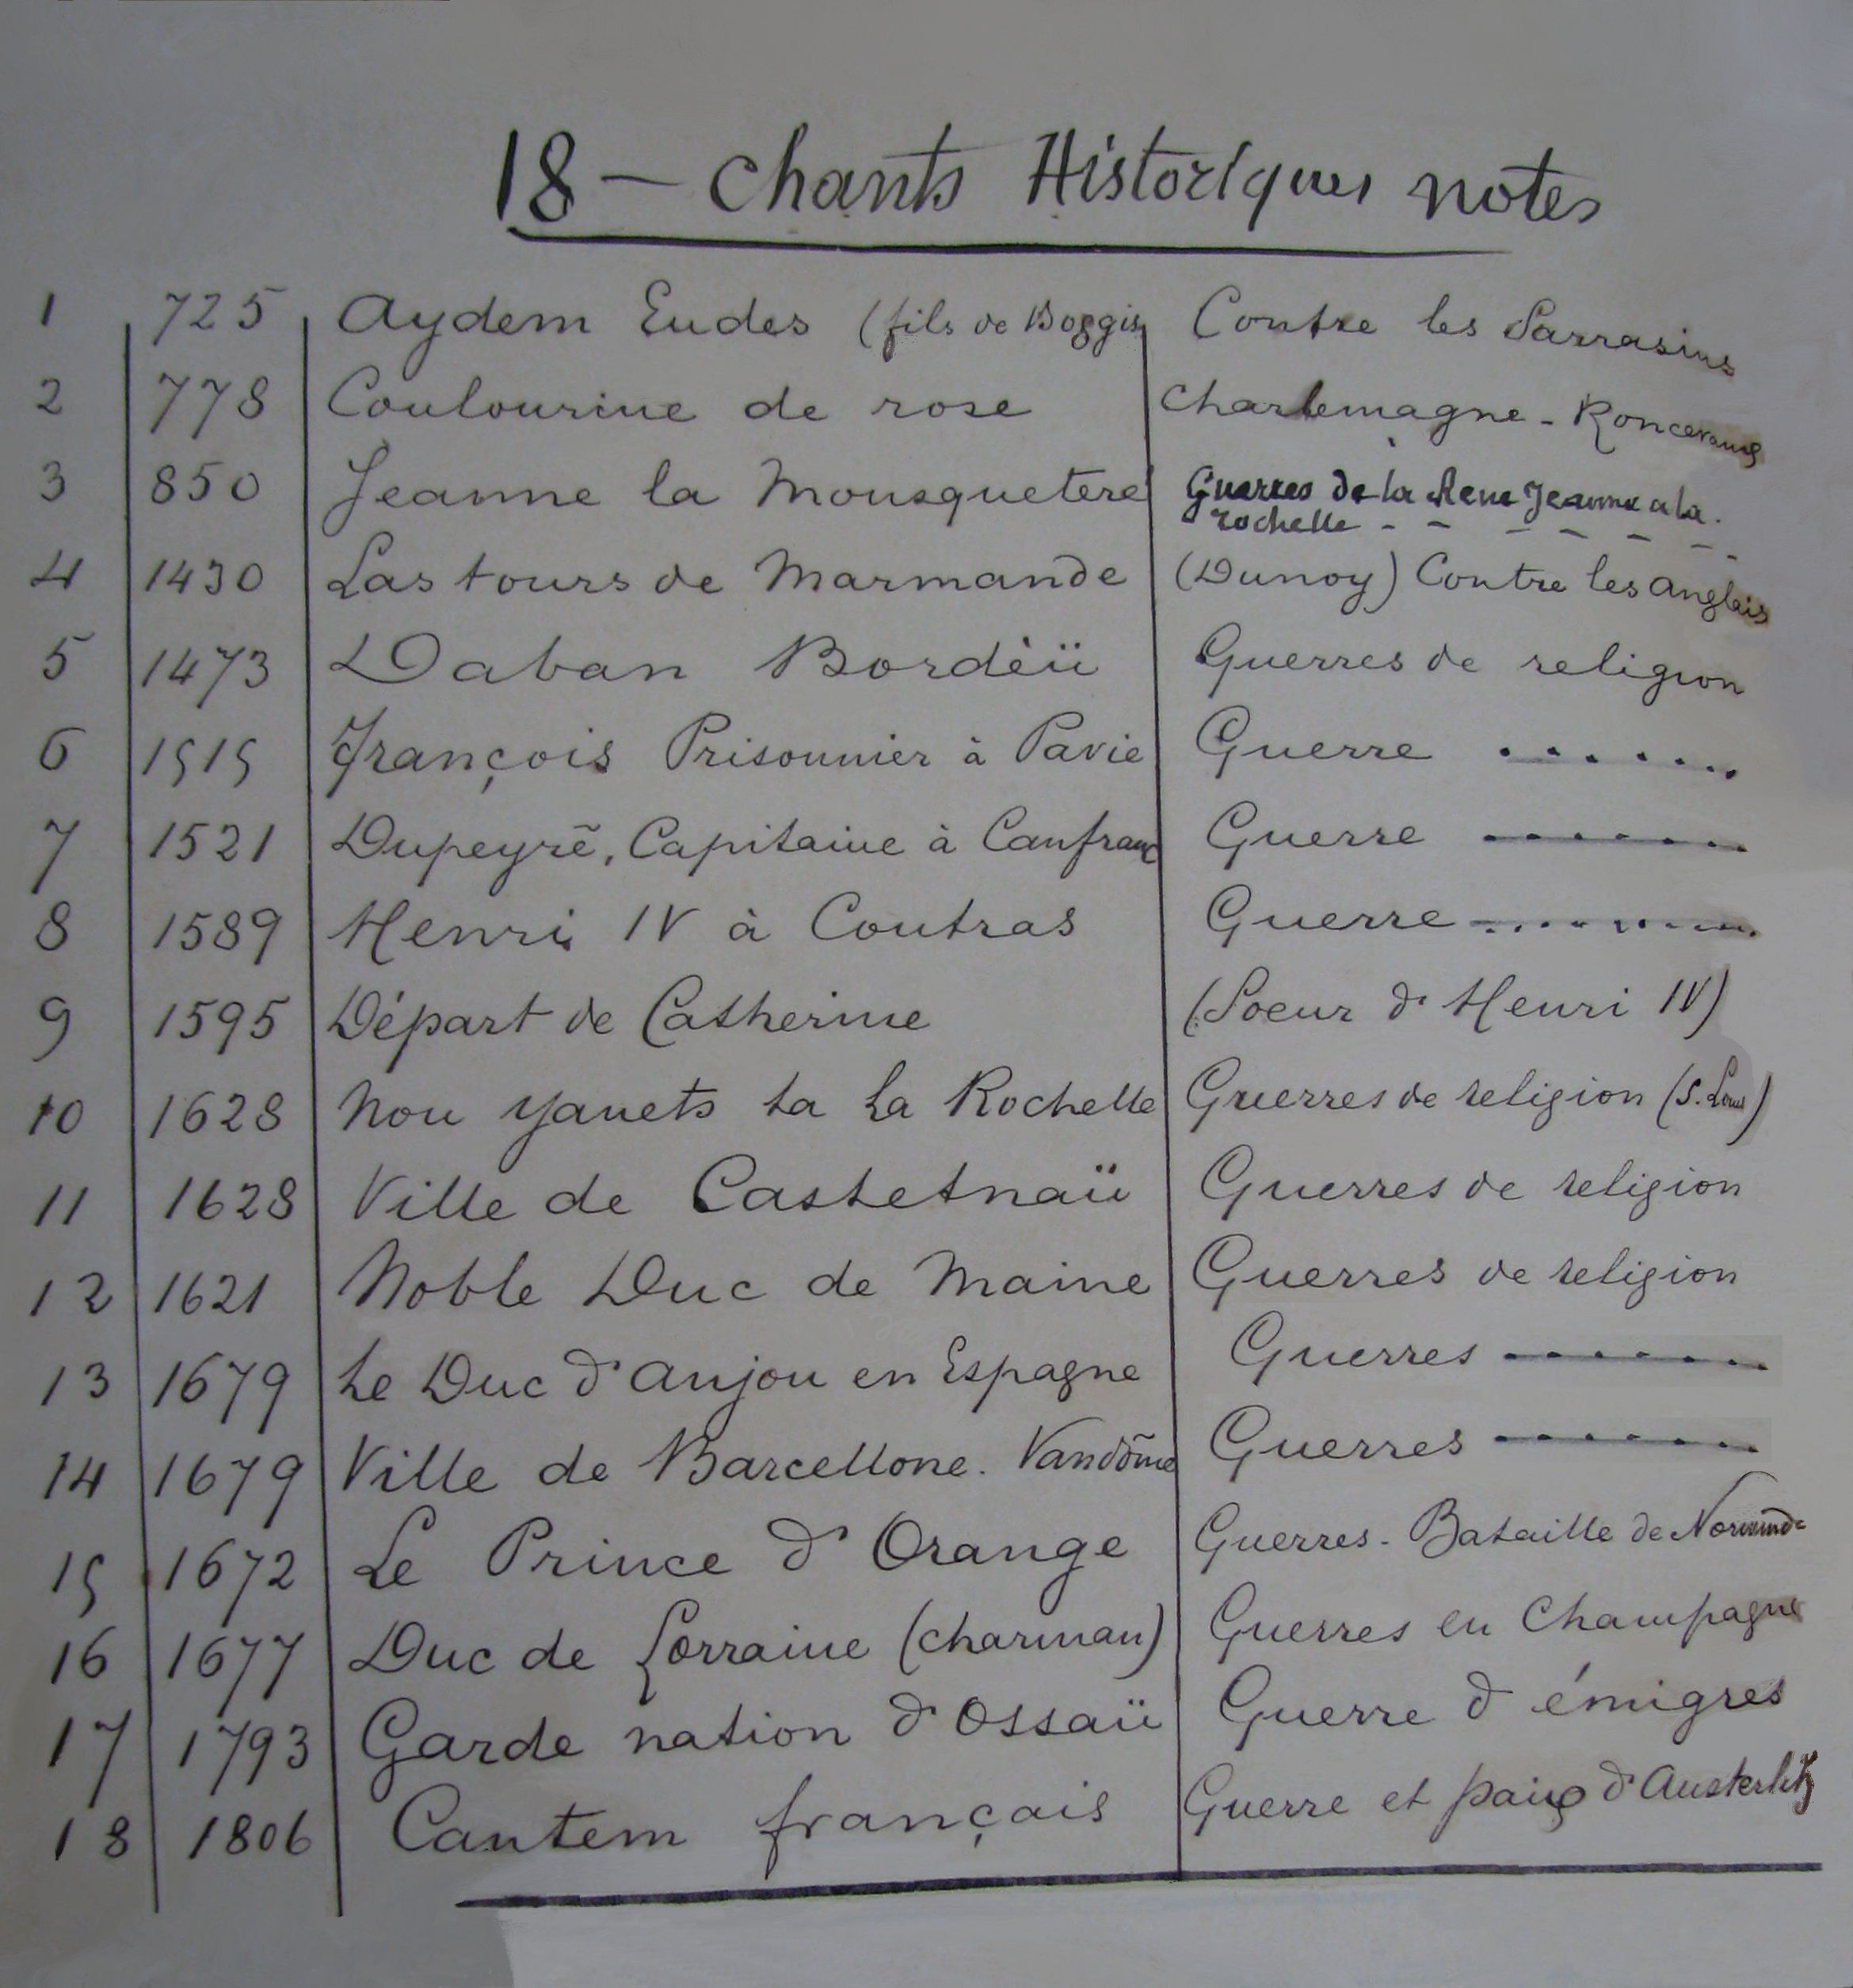 18 - Chants Historiques notes
1 725 Aydem Eudes (fils de Boggis Contre les Sarrasins
2 778 Coulourine de rose Charlemagne - Roncevaux
3 850 Jeanne la Mousquetere Guerres de la Rene Jeanne a la
rochelle - - - - - - -
4 1430 Las tours de Marmande (Dunoy) Contre les anglais
5 1473 Daban Bordèü Guerres de religion
6 1515 François Prisonnier à Pavie Guerre .......
7 1521 Dupeyrẽ, Capitaine à Canfranc Guerre .......
8 1589 Henri IV à Coutras Guerre .......
9 1595 Départ de Catherine (Soeur d'Henri IV)
10 1628 Nou yanets ta La Rochelle Guerres de religion (S. Louis)
11 1628 Ville de Castetnaü Guerres de religion
12 1621 Noble Duc de Maine Guerres de religion
13 1679 Le Duc d'anjou en Espagne Guerres .......
14 1679 Ville de Barcellone. Vandõme Guerres .......
15 1672 Le Prince d'Orange Guerres - Bataille de
16 1677 Duc de Lorraine (Charman) Guerres en Champagne
17 1793 Garde nation d'Ossaü Guerre d émigres
18 1806 Cantem français Guerre et paix d'Austerlitz